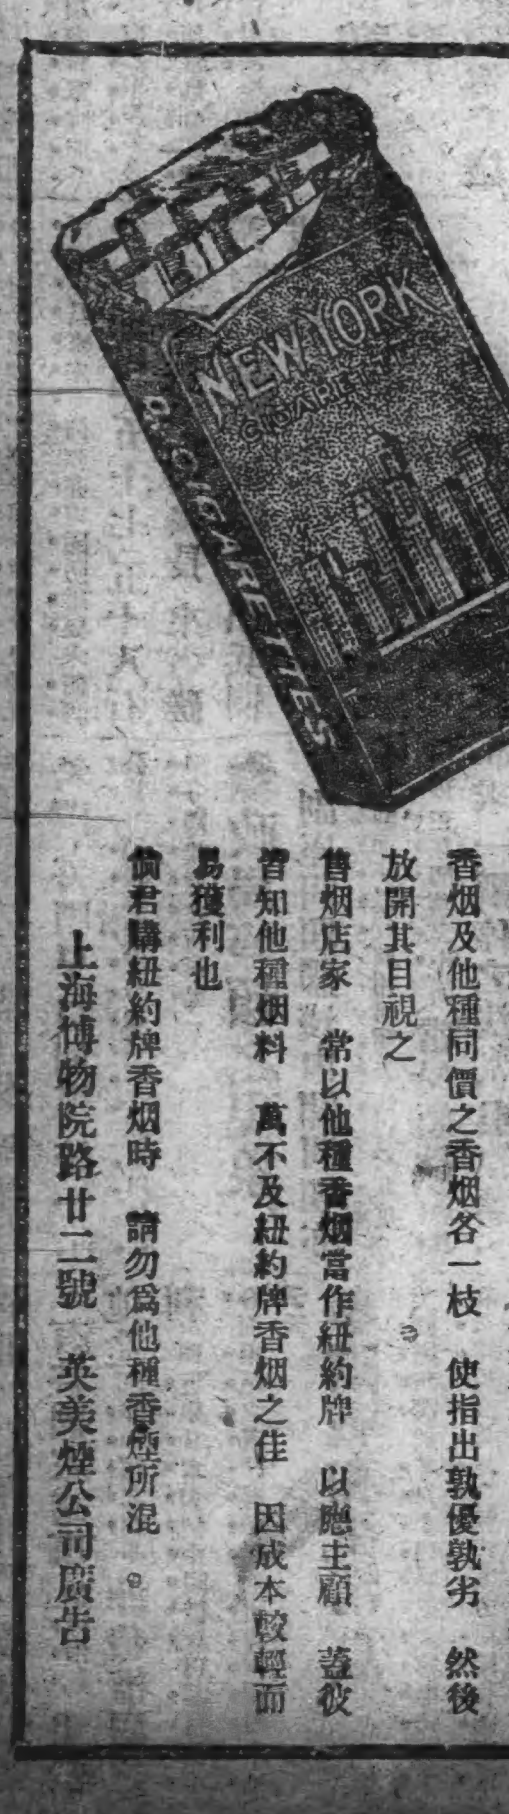 NEW YORK
CIGARETTES
CIGARETTES
香烟及他種同價之香烟各一枝 使指出孰優孰劣 然後
放開其目視之
售烟店家 常以他種香烟當作紐約牌 以應主顧 蓋彼
皆知他種烟料 萬不及紐約牌香烟之佳 因成本較輕而
易獲利也
倘君購紐約牌香烟時 請勿爲他種香煙所混。
上海博物院路廿二號 英美煙公司廣告